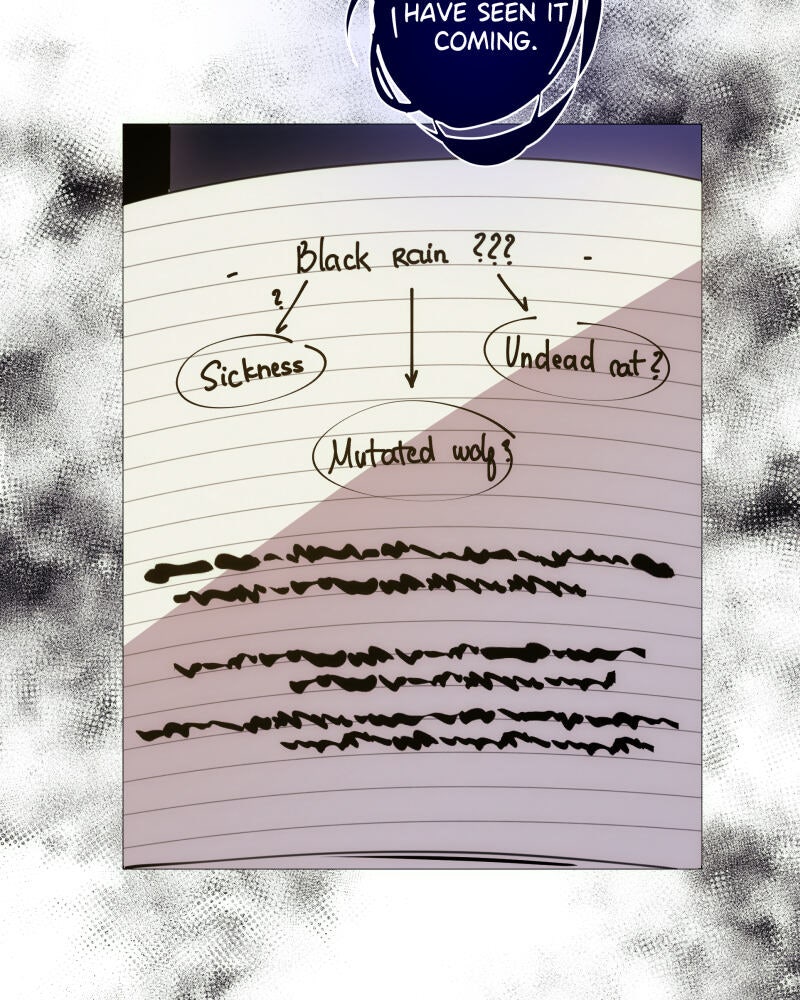 HAVE SEEN IT
COMING.
- Black rain ??? -
?
Sickness
Undead rat?
Mutated wolf?